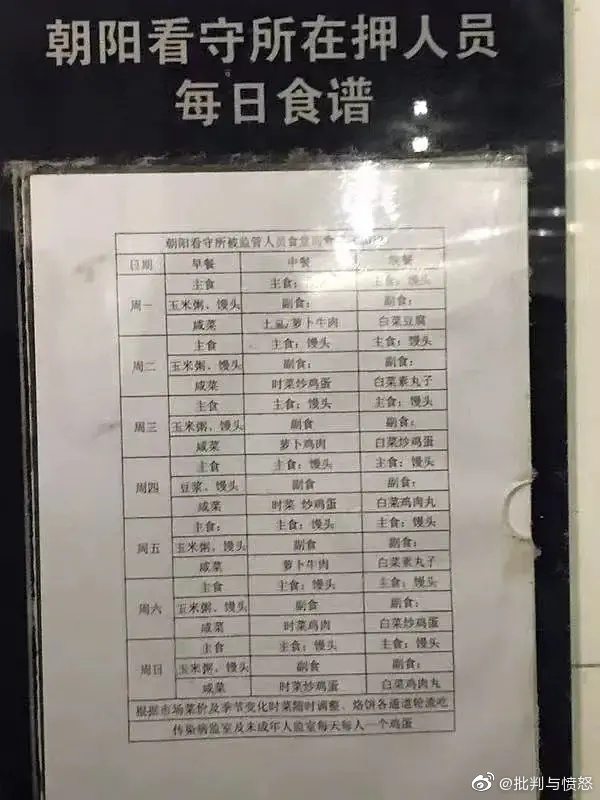 朝阳看守所在押人员
每日食谱
朝阳看守所被监管人员食堂
日期 早餐 中餐 晚餐
主食 主食: 主食: 馒头
周一 玉米粥、馒头 副食: 副食:
咸菜 土 萝卜牛肉 白菜豆腐
主食 主食: 馒头 主食: 馒头
周二 玉米粥、馒头 副食: 副食:
咸菜 时菜炒鸡蛋 白菜素丸子
主食 主食: 馒头 主食: 馒头
周三 玉米粥、馒头 副食 副食:
咸菜 萝卜鸡肉 白菜炒鸡蛋
主食 主食: 馒头 主食: 馒头
周四 豆浆、馒头 副食 副食:
咸菜 时菜 炒鸡蛋 白菜鸡肉丸
主食: 主食: 馒头 主食: 馒头
周五 玉米粥、馒头 副食 副食:
咸菜 萝卜牛肉 白菜素丸子
主食 主食: 馒头 主食: 馒头
周六 玉米粥、馒头 副食 副食:
咸菜 时菜鸡肉 白菜炒鸡蛋
主食 主食: 馒头 主食: 馒头
周日 玉米粥、馒头 副食 副食:
咸菜 时菜炒鸡蛋 白菜鸡肉丸
根据市场菜价及季节变化时菜随时调整、烙饼各通道轮流吃
传染病监室及未成年人监室每天每人一个鸡蛋
@批判与愤怒